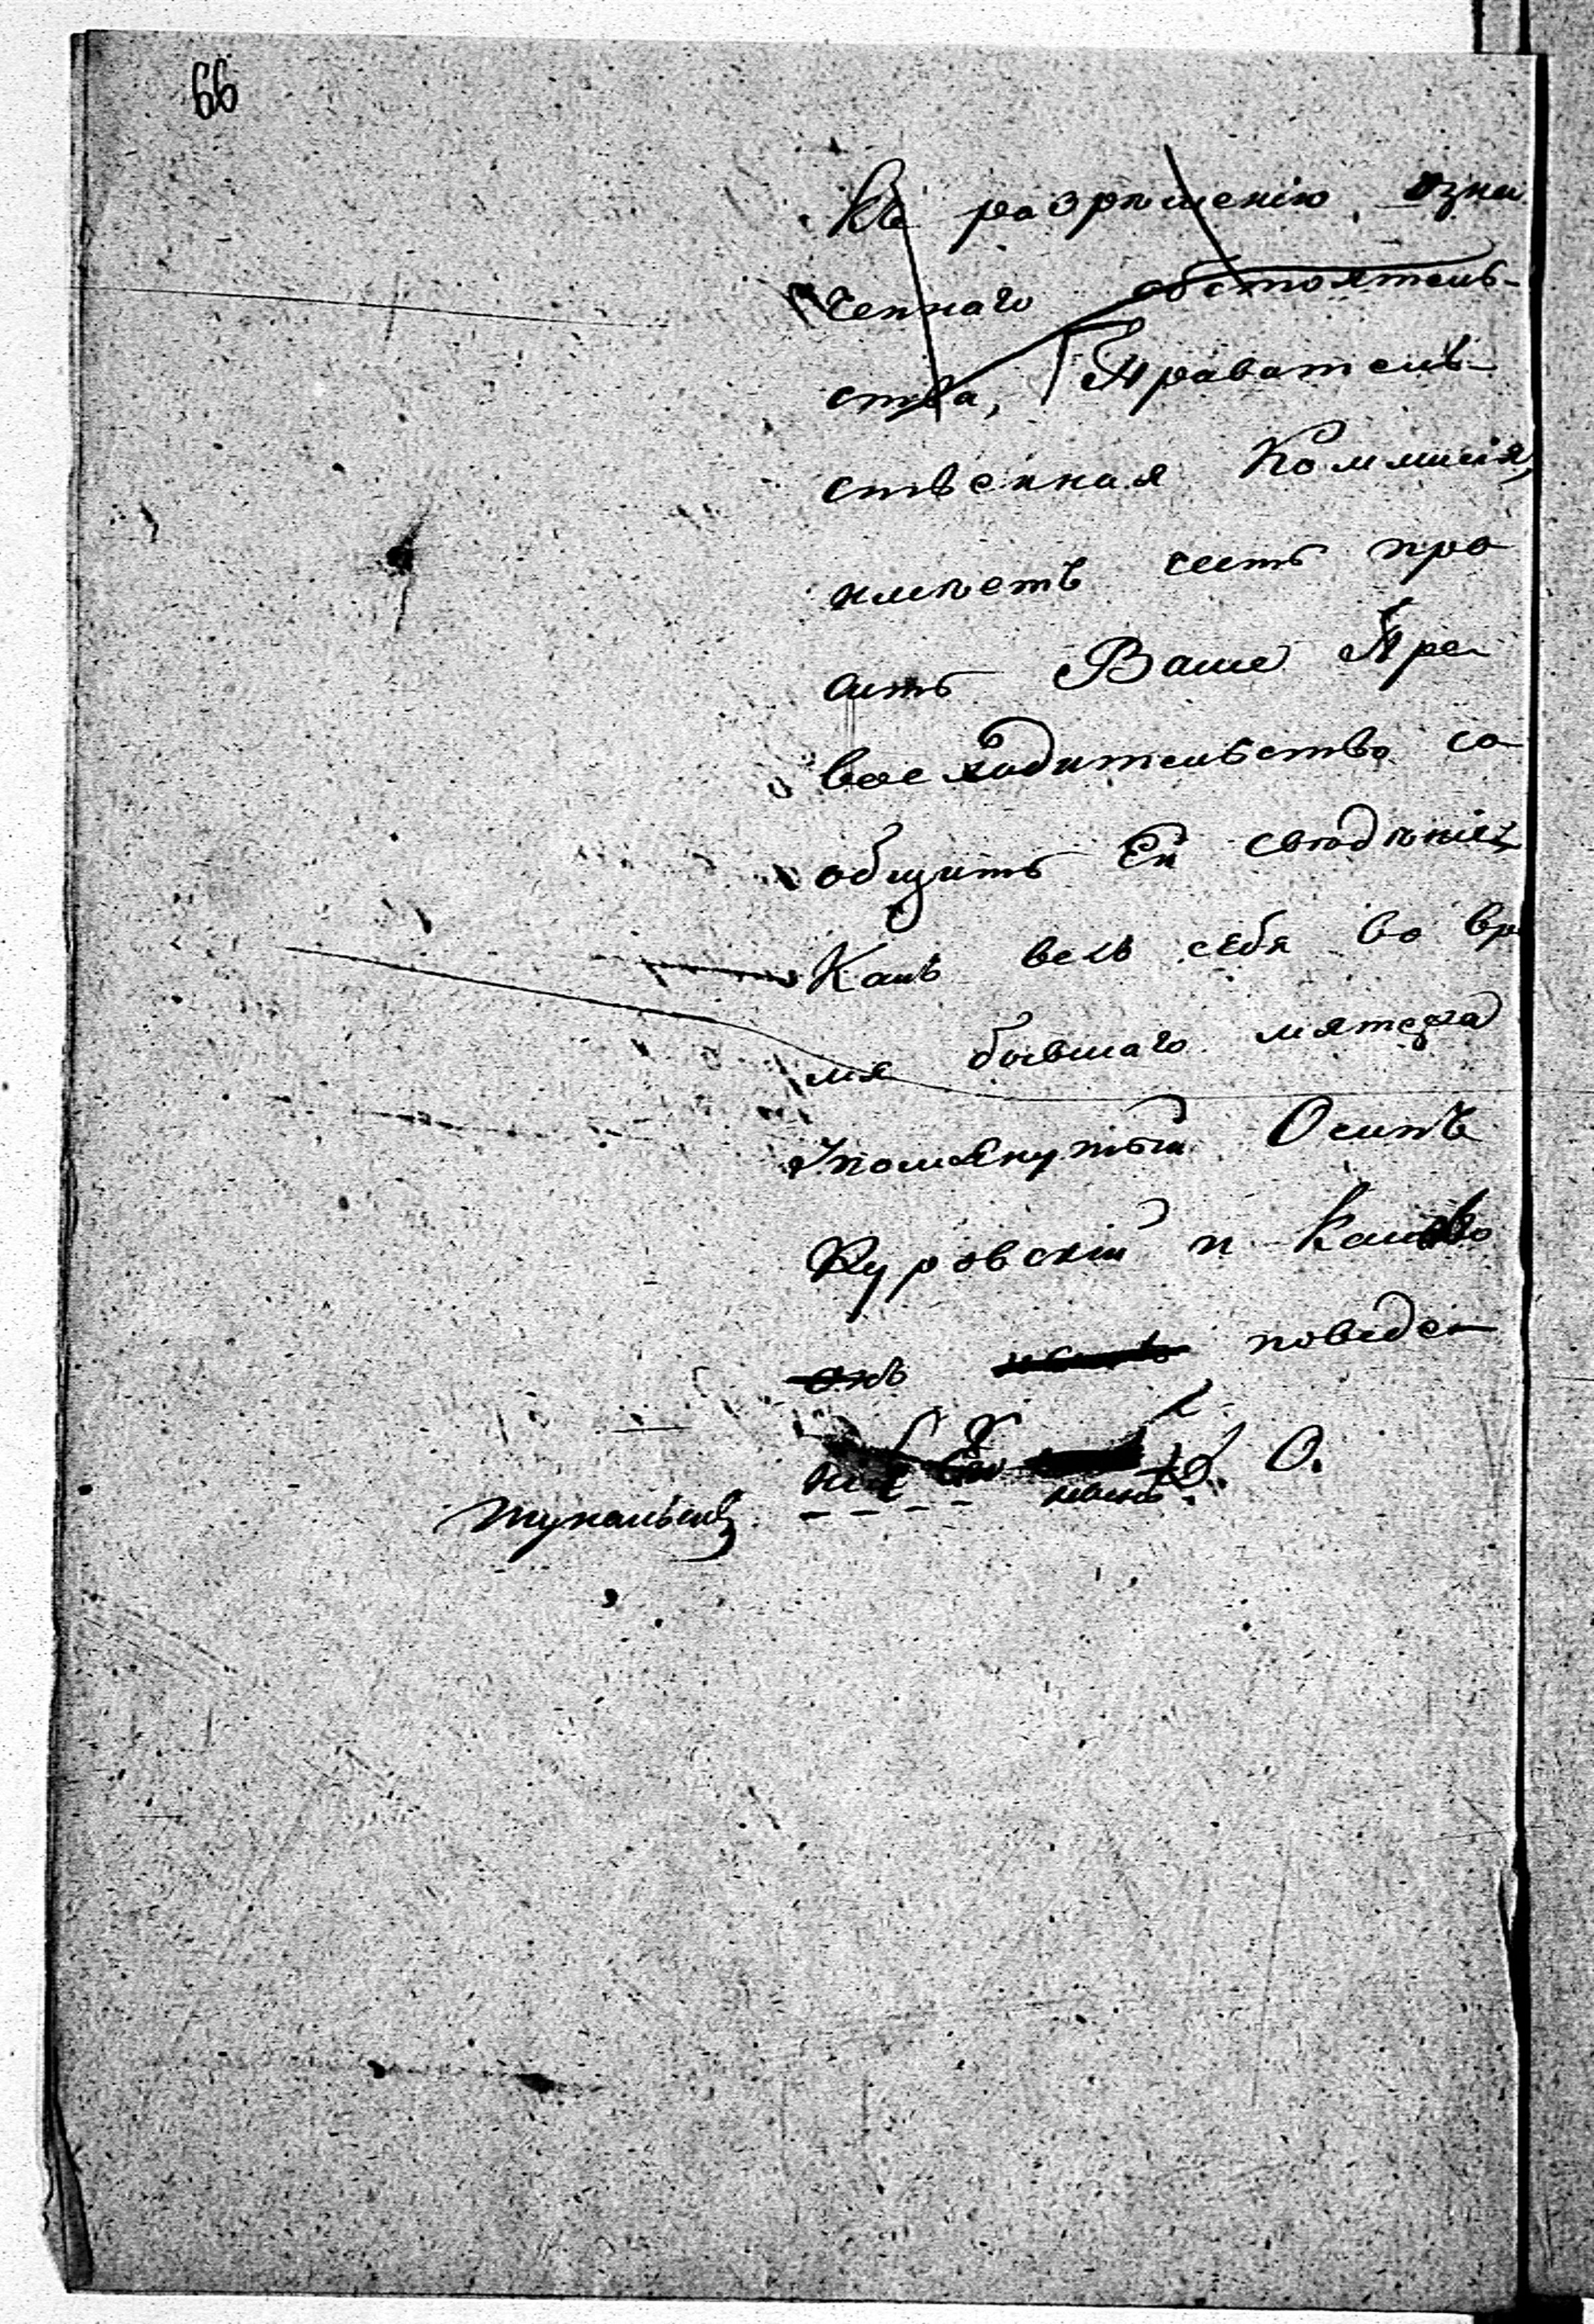 66
Къ разрѣшенію озна
ченнаго обстоятель-
ства, Правитель-
ственная Коммисія,
имѣетъ честь про
сить Ваше Пре-
восходительство со
общить Ей свѣдѣніе,
Какъ велъ себя во вре
мя бывшаго мятежа
упомянутый Осипъ
Куровскій и Каково
онъ поведе-
нія О.